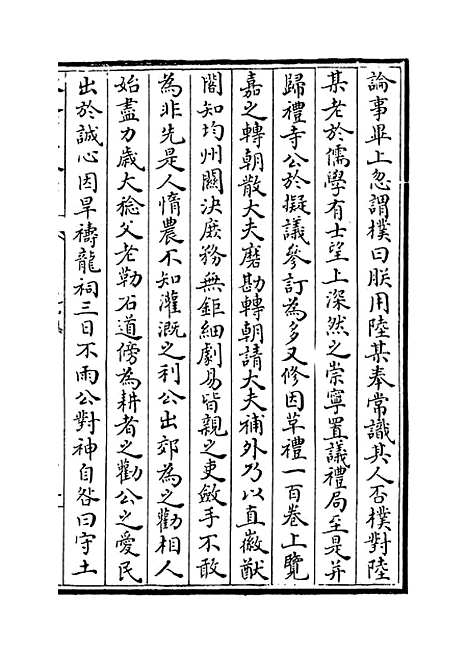 論事畢上忽謂樸曰朕用陸某奉常識其人否樸對陸
某老於儒學有士望上深然之崇寧置議禮局至是并
歸禮寺公於擬議參訂為多又修因革禮一百卷上覽
嘉之轉朝散大夫磨勘轉朝請大夫補外乃以直徽猷
閣知均州闕決庶務無鉅細劇易皆親之吏斂手不敢
為非先是人惰農不知灌溉之利公出郊為之勸相人
始盡力歲大稔父老勒石道傍為耕者之勸公之愛民
出於誠心因旱禱龍祠三日不雨公對神自咎曰守土